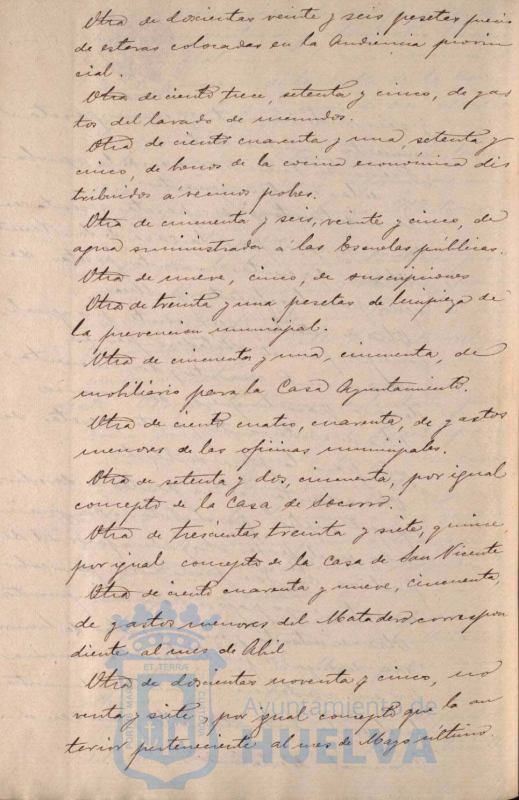 Otra de doscientas veinte y seis pesetas precio
de esteras colocadas en la Audiencia provin
cial.
Otra de ciento trece, setenta y cinco, de gas
tos del lavado de menudos.
Otra de ciento cuarenta y una, setenta y
cinco, de bonos de la cocina económica dis
tribuidos á vecinos pobres.
Otra de cincuenta y seis, veinte y cinco, de
agua suministrada á las Escuelas públicas.
Otra de nueve, cinco, de suscripciones
Otra de treinta y una pesetas de limpieza de
la prevencion municipal.
Otra de cincuenta y una, cincuenta, de
mobiliario para la Casa Ayuntamiento.
Otra de ciento cuatro, cuarenta, de gastos
menores de las oficinas municipales.
Otra de setenta y dos, cincuenta, por igual
concepto de la Casa de Socorro.
Otra de trescientas treinta y siete, quince,
por igual concepto de la Casa de San Vicente
Otra de ciento cuarenta y nueve, cincuenta,
de gastos menores del Matadero correspon
diente al mes de Abril
Otra de doscientas noventa y cinco, no
venta y siete, por igual concepto que la an
terior perteneciente al mes de Mayo último.
ET TERRÆ
Ayuntamiento de
HUELVA